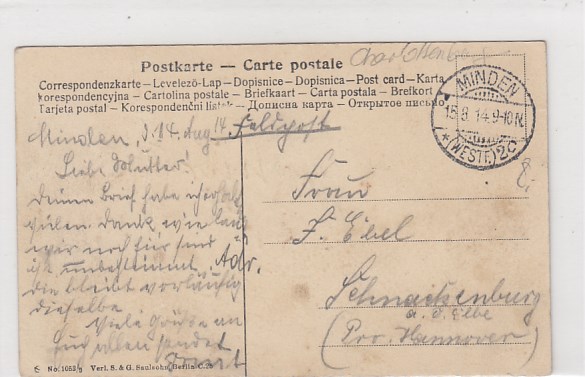 Postkarte — Carte postale
Correspondenzkarte – Levelező-Lap – Dopisnice – Dopisnica – Post card – Karta
korespondencyjna – Cartolina postale – Briefkaart – Carta postala – Brefkort
Tarjeta postal – Korespondenční lístek – Дописна карта – Открытое письмо
MINDEN
15.8.14.9-10N.
*(WESTF.)2c
Minden, d. 14. Aug 14.
Feldpost
Liebe Mutter!
Deinen Brief habe ich erhalten
vielen Dank, wie lange
wir noch hier sind
ist unbestimmt. Adr.
die bleibt vorläufig
dieselbe
Viele Grüße an
Euch allen sendet
Ernst
Frau
F. Ebel
Schnackenburg
a. d. Elbe
(Prov. Hannover)
No. 1052 Verl. S. & G. Saulsohn, Berlin C.